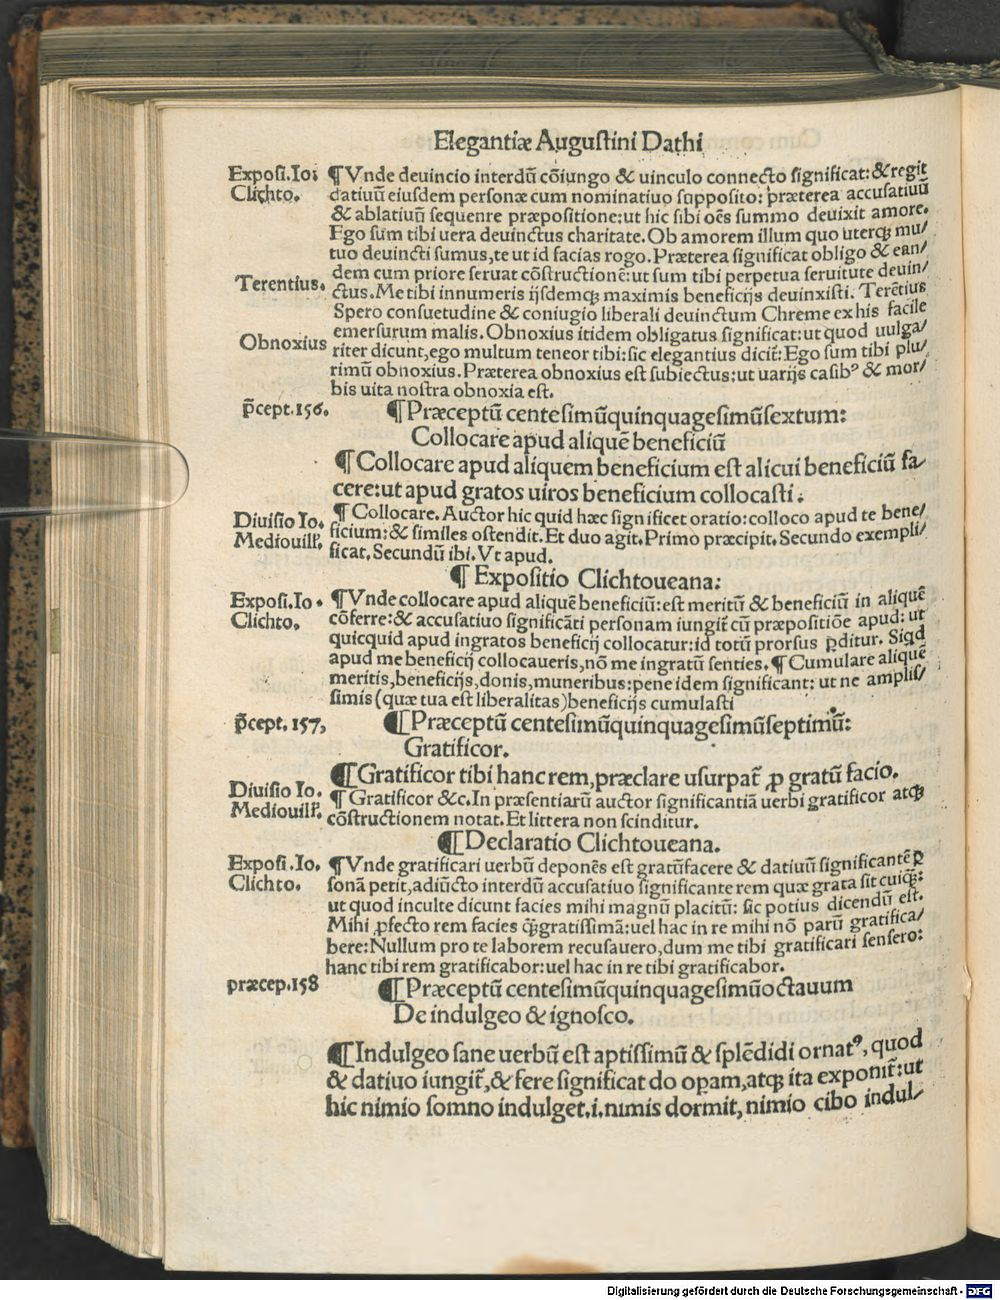 Elegantiæ Augustini Dathi
Exposi.Io:
Clichto.
¶ Vnde deuincio interdū cōiungo & uinculo connecto significat: & regit
datiuū eiusdem personæ cum nominatiuo supposito: præterea accusatiuū
& ablatiuū sequenre præpositione: ut hic sibi oēs summo deuixit amore.
Ego sum tibi uera deuinctus charitate. Ob amorem illum quo uterqꝫ mu/
tuo deuincti sumus, te ut id facias rogo. Præterea significat obligo & ean/
dem cum priore seruat cōstructionē: ut sum tibi perpetua seruitute deuin/
Terentius.
ctus. Me tibi innumeris ijsdemqꝫ maximis beneficijs deuinxisti. Terētius
Spero consuetudine & coniugio liberali deuinctum Chreme ex his facile
emersurum malis. Obnoxius itidem obligatus significat: ut quod uulga/
Obnoxius
riter dicunt, ego multum teneor tibi: sic elegantius dicit̄: Ego sum tibi plu/
rimū obnoxius. Præterea obnoxius est subiectus: ut uarijs casibꝰ & mor/
bis uita nostra obnoxia est.
p̄cept. 156.
¶ Præceptū centesimūquinquagesimūsextum:
Collocare apud aliquē beneficiū
¶ Collocare apud aliquem beneficium est alicui beneficiū fa/
cere: ut apud gratos uiros beneficium collocasti:
Diuisio Io.
Mediouill'.
¶ Collocare. Auctor hic quid hæc significet oratio: colloco apud te bene/
ficium: & similes ostendit. Et duo agit. Primo præcipit. Secundo exempli/
ficat. Secundū ibi. Vt apud.
¶ Expositio Clichtoueana:
Exposi.Io.
Clichto.
¶ Vnde collocare apud aliquē beneficiū: est meritū & beneficiū in aliquē
cōferre: & accusatiuo significāti personam iungit̄ cū præpositiōe apud: ut
quicquid apud ingratos beneficij collocatur: id totū prorsus ꝑditur. Siqd
apud me beneficij collocaueris, nō me ingratū senties. ¶ Cumulare aliquē
meritis, beneficijs, donis, muneribus: pene idem significant: ut ne amplis/
simis (quæ tua est liberalitas) beneficijs cumulasti
p̄cept. 157,
¶ Præceptū centesimūquinquagesimūseptimū:
Gratificor.
¶ Gratificor tibi hanc rem, præclare usurpat̄ ꝓ gratū facio.
Diuisio Io.
Mediouill'.
¶ Gratificor &c. In præsentiarū auctor significantiā uerbi gratificor atqꝫ
cōstructionem notat. Et littera non scinditur.
¶ Declaratio Clichtoueana.
Exposi.Io.
Clichto.
¶ Vnde gratificari uerbū deponēs est gratūfacere & datiuū significantē ꝑ
sonā petit, adiūcto interdū accusatiuo significante rem quæ grata sit cuiqꝫ:
ut quod inculte dicunt facies mihi magnū placitū: sic potius dicendū est.
Mihi ꝓfecto rem facies qꝫ̄gratissimā: uel hac in re mihi nō parū gratifica/
bere: Nullum pro te laborem recusauero, dum me tibi gratificari sensero:
hanc tibi rem gratificabor: uel hac in re tibi gratificabor.
præcep.158
¶ Præceptū centesimūquinquagesimūoctauum
De indulgeo & ignosco.
¶ Indulgeo sane uerbū est aptissimū & splēdidi ornatꝰ, quod
& datiuo iungit̄, & fere significat do opam, atqꝫ ita exponit̄: ut
hic nimio somno indulget.i.nimis dormit, nimio cibo indul/
Digitalisierung gefördert durch die Deutsche Forschungsgemeinschaft - DFG